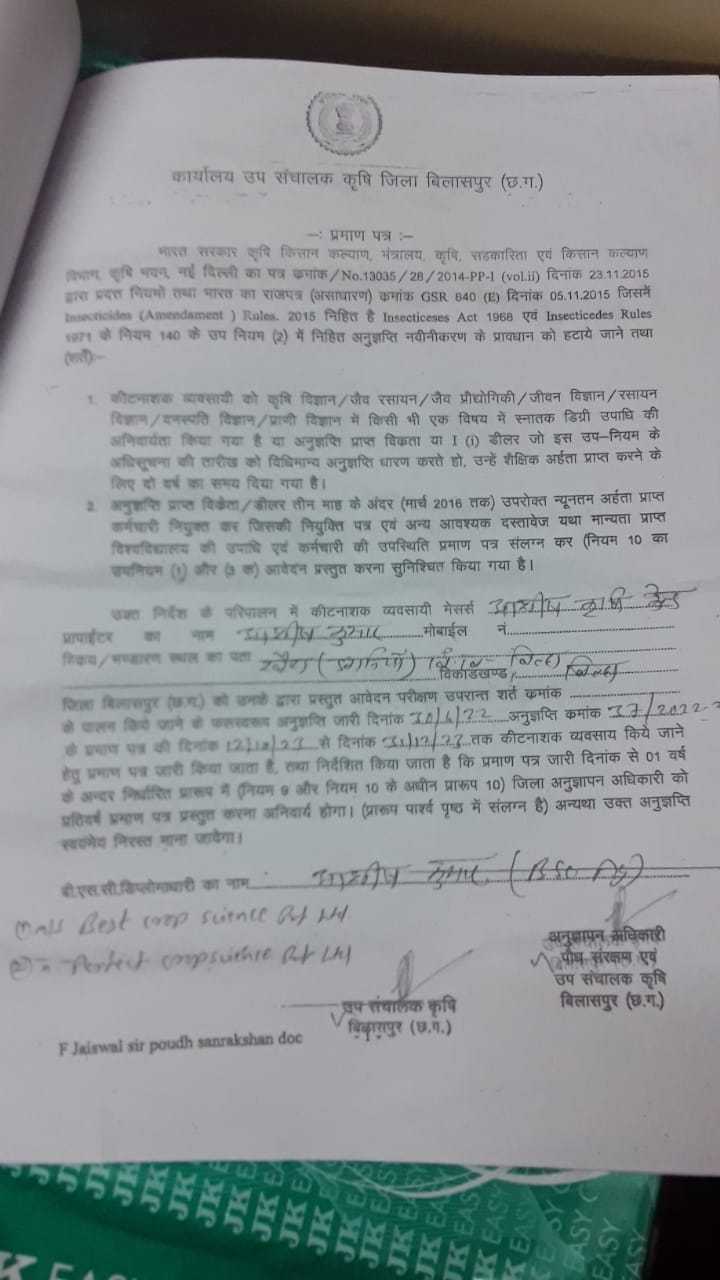 कार्यालय उप संचालक कृषि जिला बिलासपुर (छ.ग.)
–: प्रमाण पत्र :–
भारत सरकार कृषि किसान कल्याण, मंत्रालय, कृषि, सहकारिता एवं किसान कल्याण
विभाग, कृषि भवन, नई दिल्ली का पत्र कमांक/No.13035/28/2014-PP-I (vol.ii) दिनांक 23.11.2015
द्वारा प्रदत्त नियमों तथा भारत का राजपत्र (असाधारण) कमांक GSR 840 (E) दिनांक 05.11.2015 जिसमें
Insecticides (Amendament ) Rules. 2015 निहित है Insecticeses Act 1968 एवं Insecticedes Rules
1971 के नियम 140 के उप नियम (2) में निहित अनुज्ञप्ति नवीनीकरण के प्रावधान को हटाये जाने तथा
(शर्तें):–
1. कीटनाशक व्यवसायी को कृषि विज्ञान/जैव रसायन/जैव प्रौद्योगिकी/जीवन विज्ञान/रसायन
विज्ञान/वनस्पति विज्ञान/प्राणी विज्ञान में किसी भी एक विषय में स्नातक डिग्री उपाधि की
अनिवार्यता किया गया है या अनुज्ञप्ति प्राप्त विकेता या I (i) डीलर जो इस उप–नियम के
अधिसूचना की तारीख को विधिमान्य अनुज्ञप्ति धारण करते हो, उन्हें शैक्षिक अर्हता प्राप्त करने के
लिए दो वर्ष का समय दिया गया है।
2. अनुज्ञप्ति प्राप्त विकेता/डीलर तीन माह के अंदर (मार्च 2016 तक) उपरोक्त न्यूनतम अर्हता प्राप्त
कर्मचारी नियुक्त कर जिसकी नियुक्ति पत्र एवं अन्य आवश्यक दस्तावेज यथा मान्यता प्राप्त
विश्वविद्यालय की उपाधि एवं कर्मचारी की उपस्थिति प्रमाण पत्र संलग्न कर (नियम 10 का
उपनियम (1) और (3 क) आवेदन प्रस्तुत करना सुनिश्चित किया गया है।
उक्त निर्देश के परिपालन में कीटनाशक व्यवसायी मेसर्स आशीष कृषि केन्द्र
प्रापाईटर का नाम आशीष कुमार मोबाईल नं.
विकय/भण्डारण स्थल का पता विकासखण्ड बिल्हा
जिला बिलासपुर (छ.ग.) को उनके द्वारा प्रस्तुत आवेदन परीक्षण उपरान्त शर्त कमांक
के पालन किये जाने के फलस्वरूप अनुज्ञप्ति जारी दिनांक 30/6/22 अनुज्ञप्ति कमांक 37/2022-2
के प्रमाण पत्र की दिनांक 12/10/23 से दिनांक 31/12/23 तक कीटनाशक व्यवसाय किये जाने
हेतु प्रमाण पत्र जारी किया जाता है, तथा निर्देशित किया जाता है कि प्रमाण पत्र जारी दिनांक से 01 वर्ष
के अन्दर निर्धारित प्रारूप में (नियम 9 और नियम 10 के अधीन प्रारूप 10) जिला अनुज्ञापन अधिकारी को
प्रतिवर्ष प्रमाण पत्र प्रस्तुत करना अनिवार्य होगा। (प्रारूप पार्श्व पृष्ठ में संलग्न है) अन्यथा उक्त अनुज्ञप्ति
स्वयंमेव निरस्त माना जावेगा।
बी.एस.सी.डिप्लोमाधारी का नाम आशीष कुमार (BSC Ag)
(1) M/S Best crop science Pvt Ltd.
(2) " Perfect cropscience Pvt Ltd
अनुज्ञापन अधिकारी
पौध संरक्षण एवं
उप संचालक कृषि
बिलासपुर (छ.ग.)
उप संचालक कृषि
बिलासपुर (छ.ग.)
F Jaiswal sir poudh sanrakshan doc
JK EASY